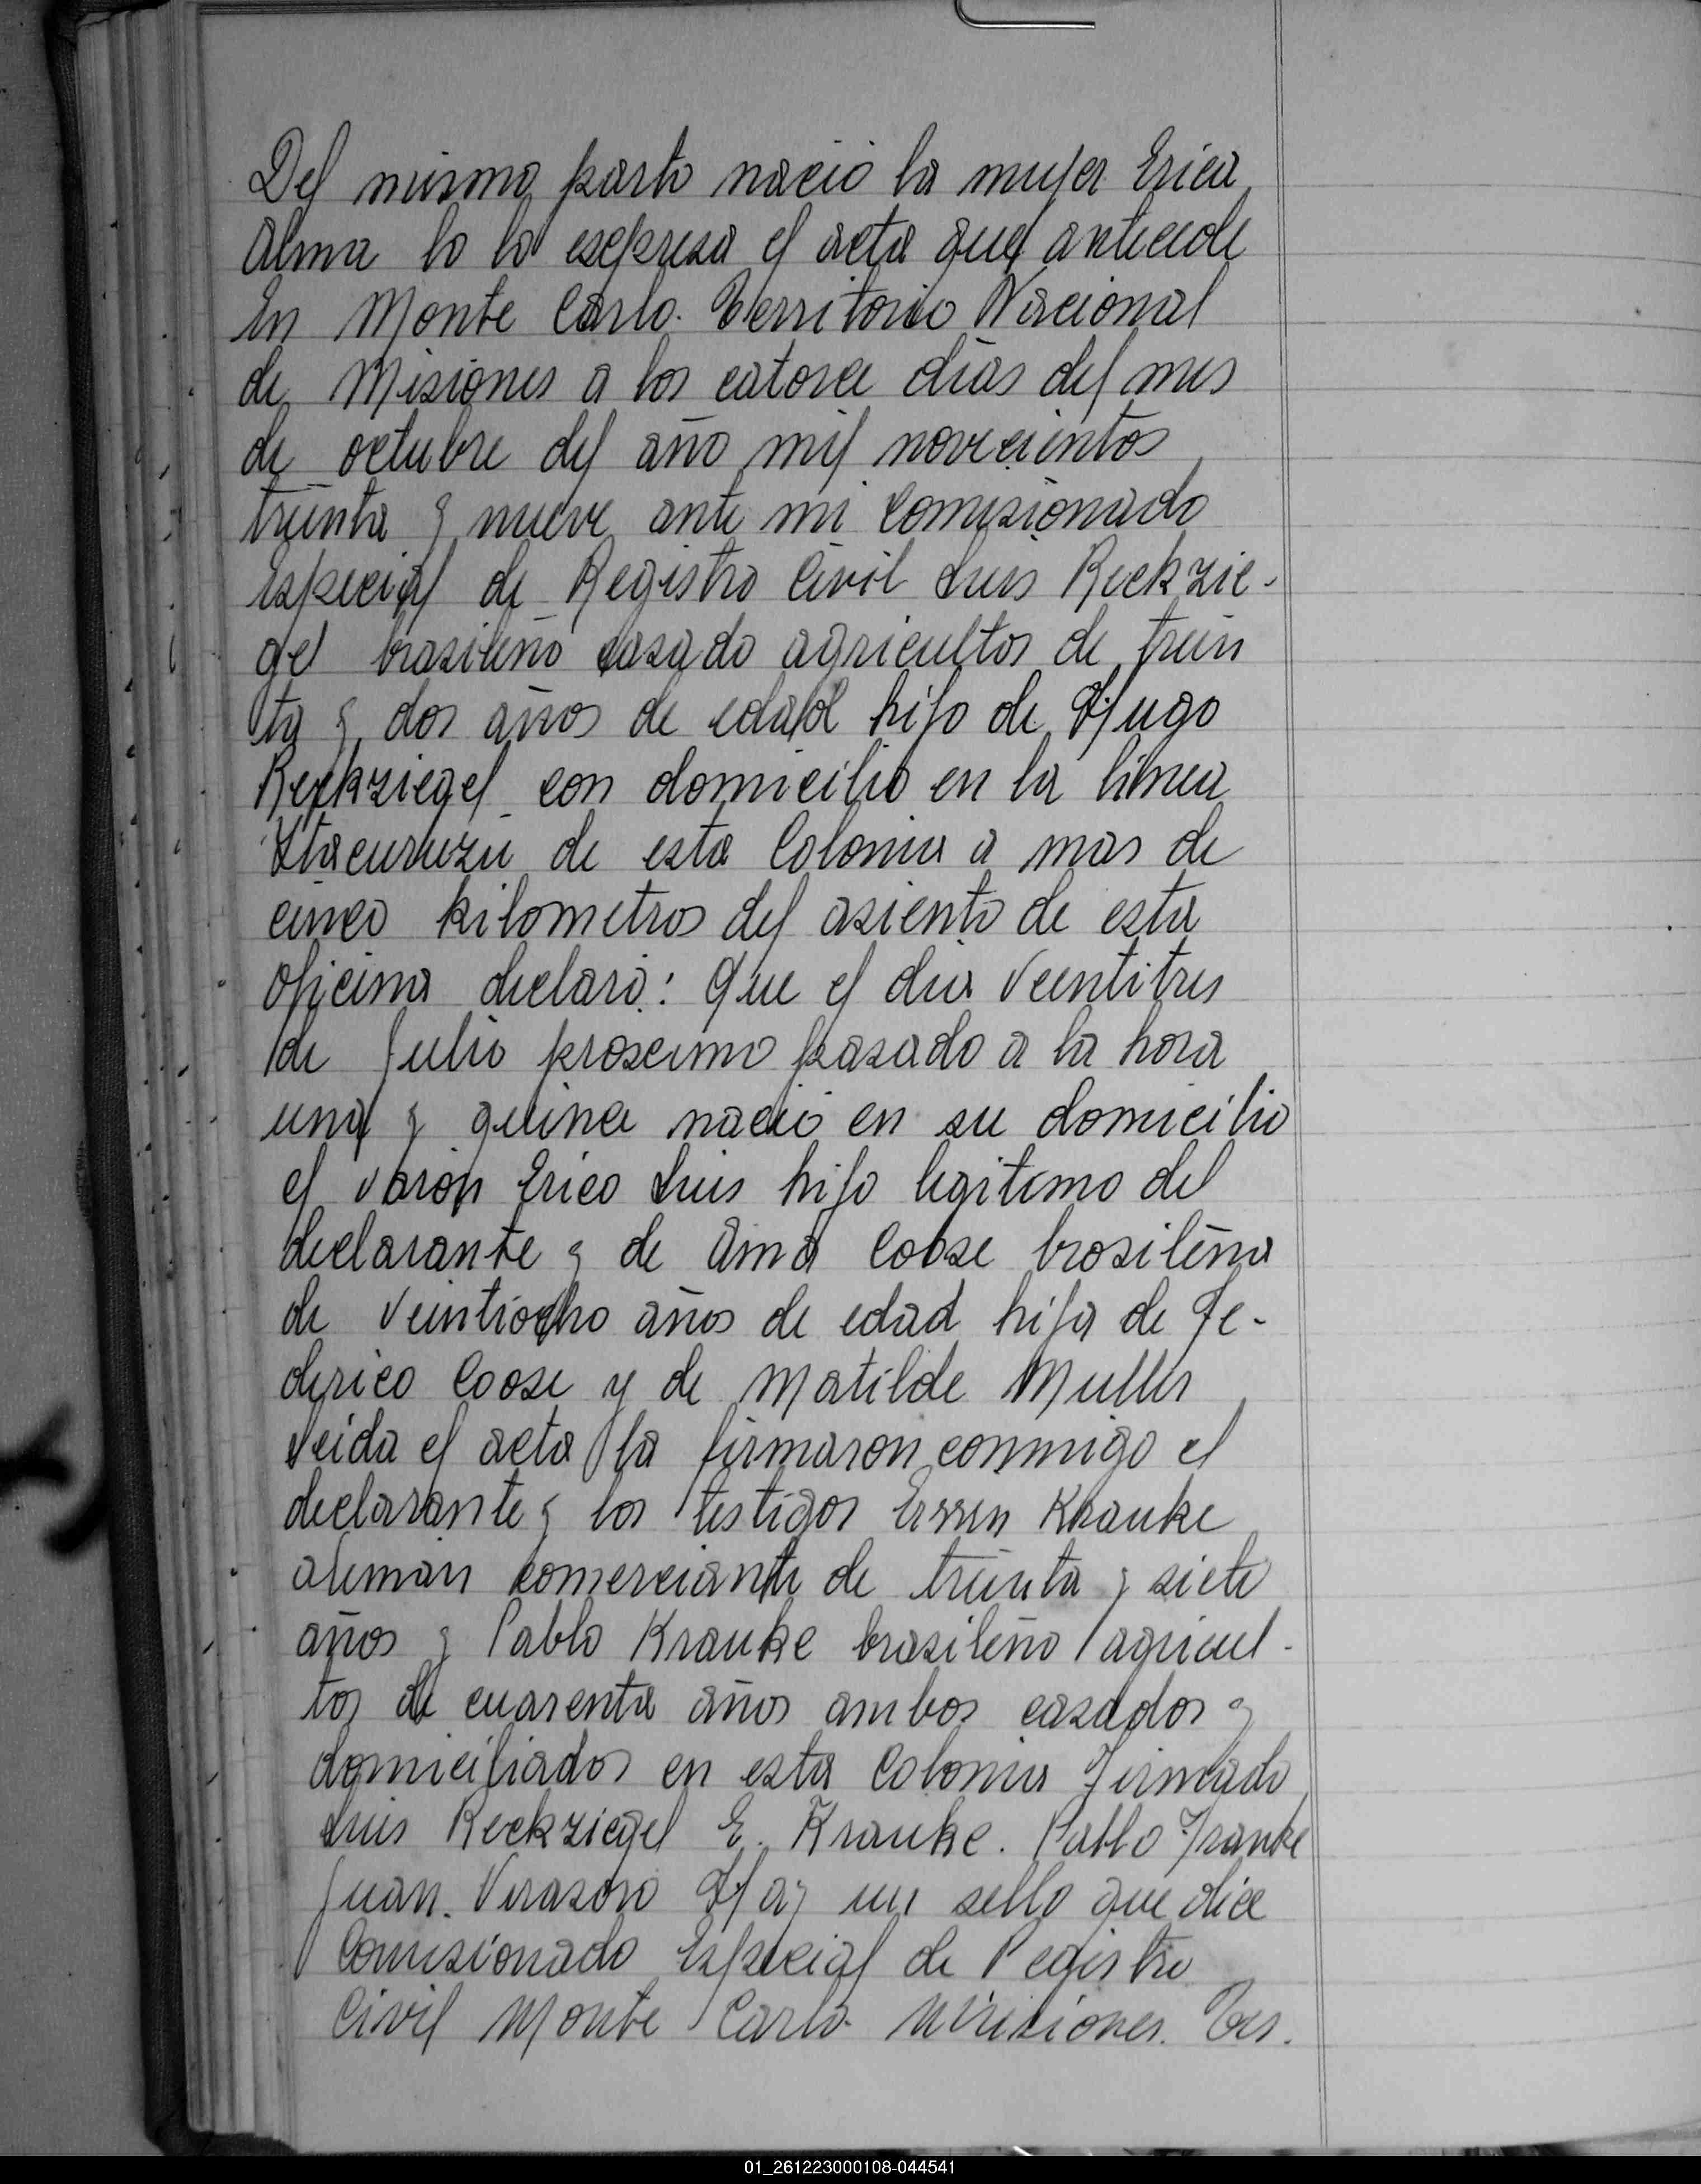 Del mismo parto nació la mujer Erica
Alma lo lo esepresa el acta que antecede
En Monte Carlo. Territorio Nacional
de Misiones a los catorce dias del mes
de octubre del año mil novecientos
treinta y nueve ante mi Comisionado
Especial de Registro Civil Luis Reckzie-
gel brasileño casado agricultor de trein
ta y dos años de edad hijo de Hugo
Reckziegel con domicilio en la linea
Itacuruzu de esta Colonia a mas de
cinco kilometros del asiento de esta
oficina declaró: Que el dia Veintitres
de Julio proscimo pasado a la hora
una y quince nació en su domicilio
el varón Erico Luis hijo legitimo del
declarante y de Ama Coose brasileña
de Veintiocho años de edad hija de Fe-
derico Coose y de Matilde Muller
Leida el acta la firmaron conmigo el
declarante y los testigos Krauke
aleman comerciante de treinta y siete
años y Pablo Krauke brasileño agricul-
tor de cuarenta años ambos casados y
domiciliados en esta Colonia Firmado
Luis Reckziegel E. Krauke. Pablo Franke
Juan. Virasoro Hay un sello que dice
Comisionado Especial de Registro
Civil Monte Carlo. Misiones. Ter.
01_261223000108-044541